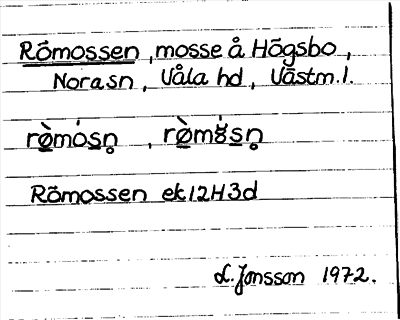 Römossen, mosse å Högsbo,
Nora sn, Våla hd, Västm. l.
rø̀mósn̥, rø̀mósn̥
Römossen ek 12H3d
L. Jonsson 1972.